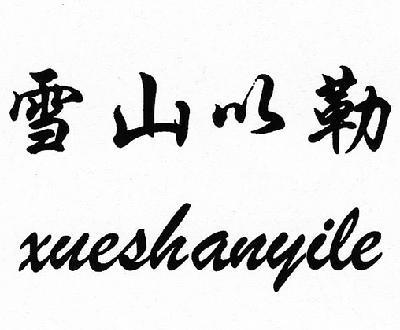 雪山以勒
xueshanyile